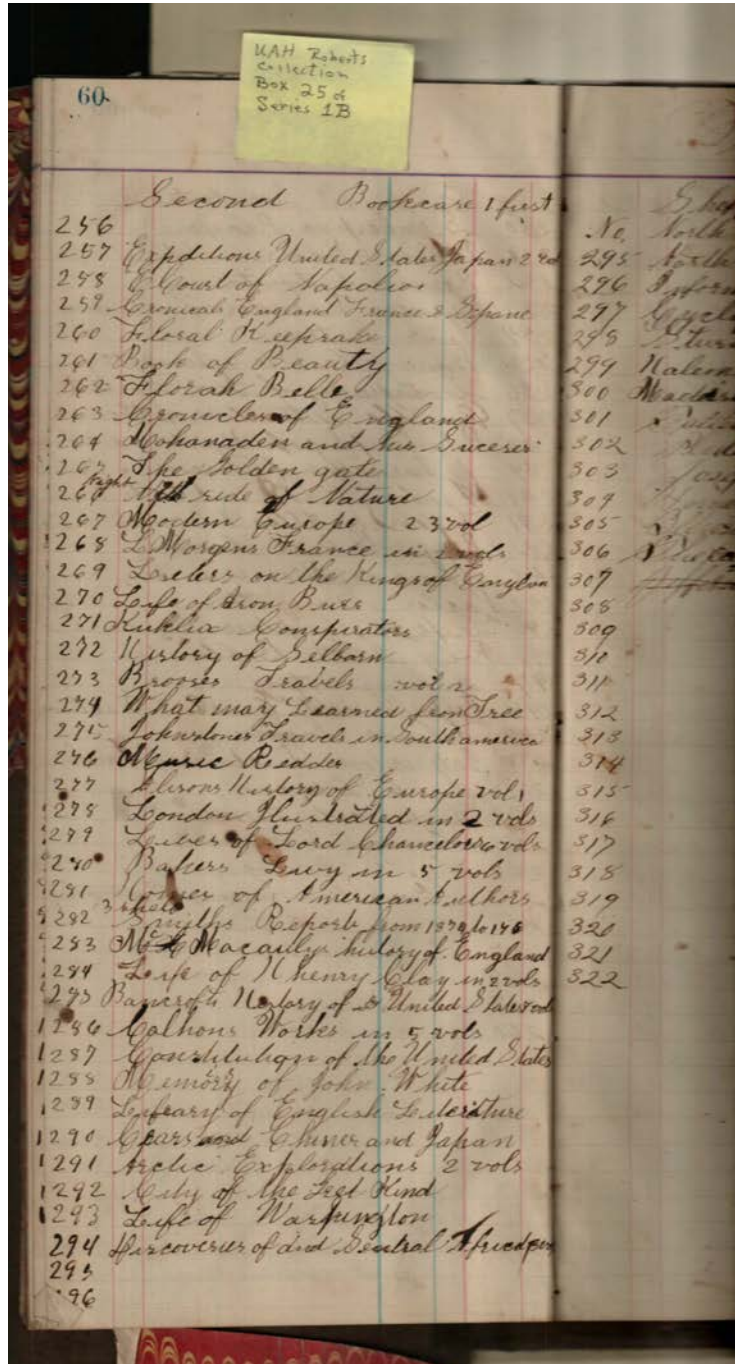 UAH Roberts
Collection
Box 25 of
Series 1B
60
Second Bookcare 1 first
256
257 Expditions United States Japan 2 vol
258 Court of Napolion
259 Cronicals England France & Spane
260 Floral Keepsake
261 Book of Beauty
262 Florah Belle
263 Cronicles of England
264 Mohanaden and his Suceser
265 The Golden gate
266 Night ride of Nature
267 Modern Europe 23 vol
268 L Morgens France in 2 vols
269 Leters on the Kings of
270 Life of Aron Burr
271 Kuklix Conspirators
272 History of Selborn
273 Travels vol 2
274 What may Learned from Tree
275 Johnstones Travels in South america
276 Music Redder
277 Alisons History of Europe vol 1
278 London Ilustrated in 2 vols
279 Lives of Lord Chancelors 6 vols
280 Bakers Livy in 5 vols
281 Homes of American Authors
282 Smyths Reports from to
283 Macauly history of England
284 Life of Henry Clay in 2 vols
285 Bancroft History of United States vol
1286 Calhons Works in 5 vols
1287 Constitution of the United States
1288 Memory of John White
1289 Library of English Leterature
1290 and Chiner and Japan
1291 Arctic Explorations 2 vols
1292 City of the Kind
1293 Life of Warshington
294 Discoveries of and Sentral
295
296
No. North
295 North
296 Inform
297 Cycl
298
299
300
301
302
303
304
305
306
307
308
309
310
311
312
313
314
315
316
317
318
319
320
321
322